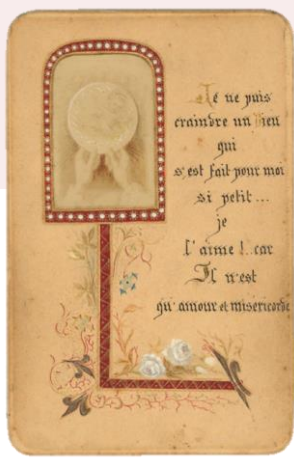 Je ne puis
craindre un Dieu
qui
s'est fait pour moi
si petit...
je
l'aime !..car
Il n'est
qu'amour et miséricorde